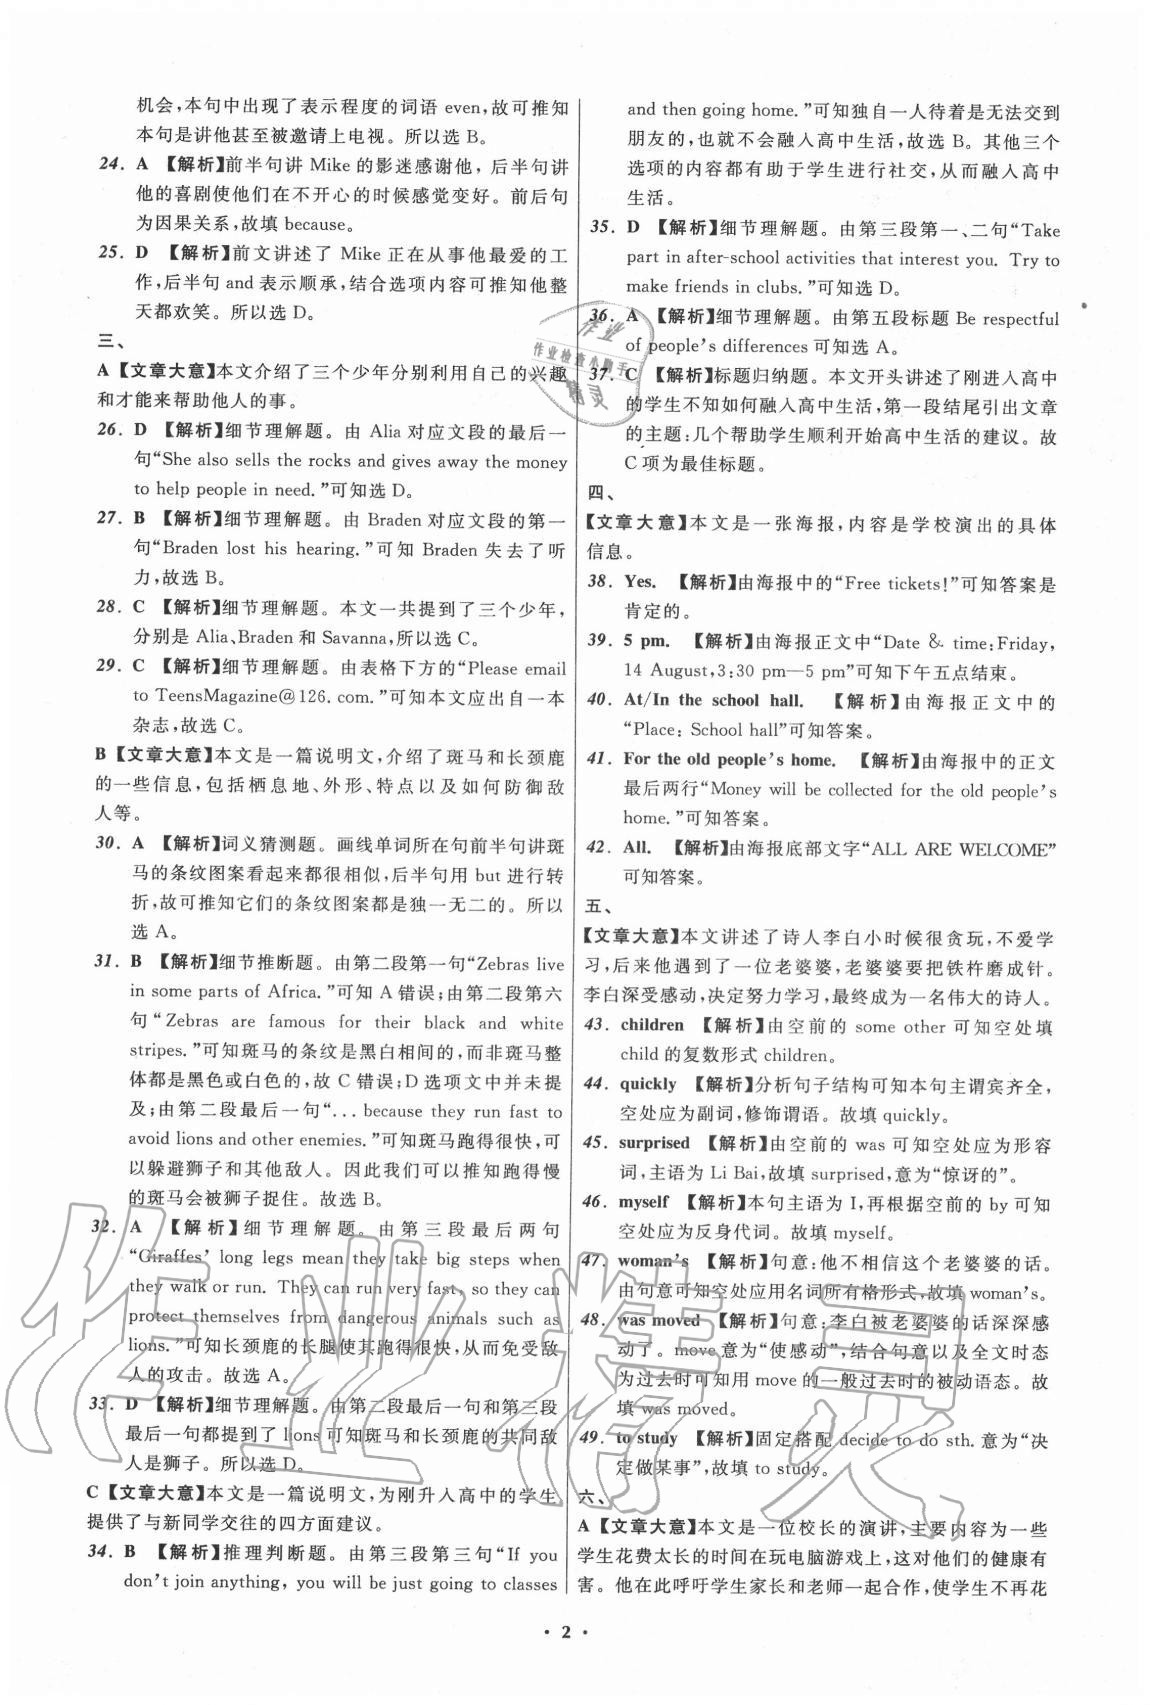 机会,本句中出现了表示程度的词语 even,故可推知
本句是讲他甚至被邀请上电视。所以选 B。
24. A 【解析】前半句讲 Mike 的影迷感谢他，后半句讲
他的喜剧使他们在不开心的时候感觉变好。前后句
为因果关系,故填 because。
25. D 【解析】前文讲述了 Mike 正在从事他最爱的工
作,后半句 and 表示顺承,结合选项内容可推知他整
天都欢笑。所以选 D。
三、
A【文章大意】本文介绍了三个少年分别利用自己的兴趣
和才能来帮助他人的事。
26. D 【解析】细节理解题。由 Alia 对应文段的最后一
句“She also sells the rocks and gives away the money
to help people in need.”可知选 D。
27. B 【解析】细节理解题。由 Braden 对应文段的第一
句“Braden lost his hearing.”可知 Braden 失去了听
力,故选 B。
28. C 【解析】细节理解题。本文一共提到了三个少年,
分别是 Alia、Braden 和 Savanna,所以选 C。
29. C 【解析】细节理解题。由表格下方的“Please email
to TeensMagazine@126. com.”可知本文应出自一本
杂志,故选 C。
B【文章大意】本文是一篇说明文,介绍了斑马和长颈鹿
的一些信息,包括栖息地、外形、特点以及如何防御敌
人等。
30. A 【解析】词义猜测题。画线单词所在句前半句讲斑
马的条纹图案看起来都很相似,后半句用 but 进行转
折,故可推知它们的条纹图案都是独一无二的。所以
选 A。
31. B 【解析】细节推断题。由第二段第一句“Zebras live
in some parts of Africa.”可知 A 错误;由第二段第六
句“Zebras are famous for their black and white
stripes.”可知斑马的条纹是黑白相间的,而非斑马整
体都是黑色或白色的,故 C 错误;D 选项文中并未提
及;由第二段最后一句“... because they run fast to
avoid lions and other enemies.”可知斑马跑得很快,可
以躲避狮子和其他敌人。因此我们可以推知跑得慢
的斑马会被狮子捉住。故选 B。
32. A 【解析】细节理解题。由第三段最后两句
“Giraffes’ long legs mean they take big steps when
they walk or run. They can run very fast, so they can
protect themselves from dangerous animals such as
lions.”可知长颈鹿的长腿使其跑得很快,从而免受敌
人的攻击。故选 A。
33. D 【解析】细节理解题。由第二段最后一句和第三段
最后一句都提到了 lions 可知斑马和长颈鹿的共同敌
人是狮子。所以选 D。
C【文章大意】本文是一篇说明文,为刚升入高中的学生
提供了与新同学交往的四方面建议。
34. B 【解析】推理判断题。由第三段第三句“If you
don’t join anything, you will be just going to classes
and then going home.”可知独自一人待着是无法交到
朋友的,也就不会融入高中生活,故选 B。其他三个
选项的内容都有助于学生进行社交,从而融入高中
生活。
35. D 【解析】细节理解题。由第三段第一、二句“Take
part in after-school activities that interest you. Try to
make friends in clubs.”可知选 D。
36. A 【解析】细节理解题。由第五段标题 Be respectful
of people’s differences 可知选 A。
37. C 【解析】标题归纳题。本文开头讲述了刚进入高中
的学生不知如何融入高中生活,第一段结尾引出文章
的主题:几个帮助学生顺利开始高中生活的建议。故
C 项为最佳标题。
四、
【文章大意】本文是一张海报,内容是学校演出的具体
信息。
38. Yes. 【解析】由海报中的“Free tickets!”可知答案是
肯定的。
39. 5 pm. 【解析】由海报正文中“Date & time:Friday,
14 August,3:30 pm—5 pm”可知下午五点结束。
40. At/In the school hall. 【解析】由海报正文中的
“Place: School hall”可知答案。
41. For the old people’s home. 【解析】由海报中的正文
最后两行“Money will be collected for the old people’s
home.”可知答案。
42. All. 【解析】由海报底部文字“ALL ARE WELCOME”
可知答案。
五、
【文章大意】本文讲述了诗人李白小时候很贪玩,不爱学
习,后来他遇到了一位老婆婆,老婆婆要把铁杵磨成针。
李白深受感动,决定努力学习,最终成为一名伟大的诗人。
43. children 【解析】由空前的 some other 可知空处填
child 的复数形式 children。
44. quickly 【解析】分析句子结构可知本句主谓宾齐全,
空处应为副词,修饰谓语。故填 quickly。
45. surprised 【解析】由空前的 was 可知空处应为形容
词,主语为 Li Bai,故填 surprised,意为“惊讶的”。
46. myself 【解析】本句主语为 I,再根据空前的 by 可知
空处应为反身代词。故填 myself。
47. woman’s 【解析】句意:他不相信这个老婆婆的话。
由句意可知空处应用名词所有格形式,故填 woman’s。
48. was moved 【解析】句意:李白被老婆婆的话深深感
动了。move 意为“使感动”,结合句意以及全文时态
为过去时可知用 move 的一般过去时的被动语态。故
填 was moved。
49. to study 【解析】固定搭配 decide to do sth. 意为“决
定做某事”,故填 to study。
六、
A【文章大意】本文是一位校长的演讲,主要内容为一些
学生花费太长的时间在玩电脑游戏上,这对他们的健康有
害。他在此呼吁学生家长和老师一起合作,使学生不再花
· 2 ·
作业
作业检查小助手
精灵
作业精灵